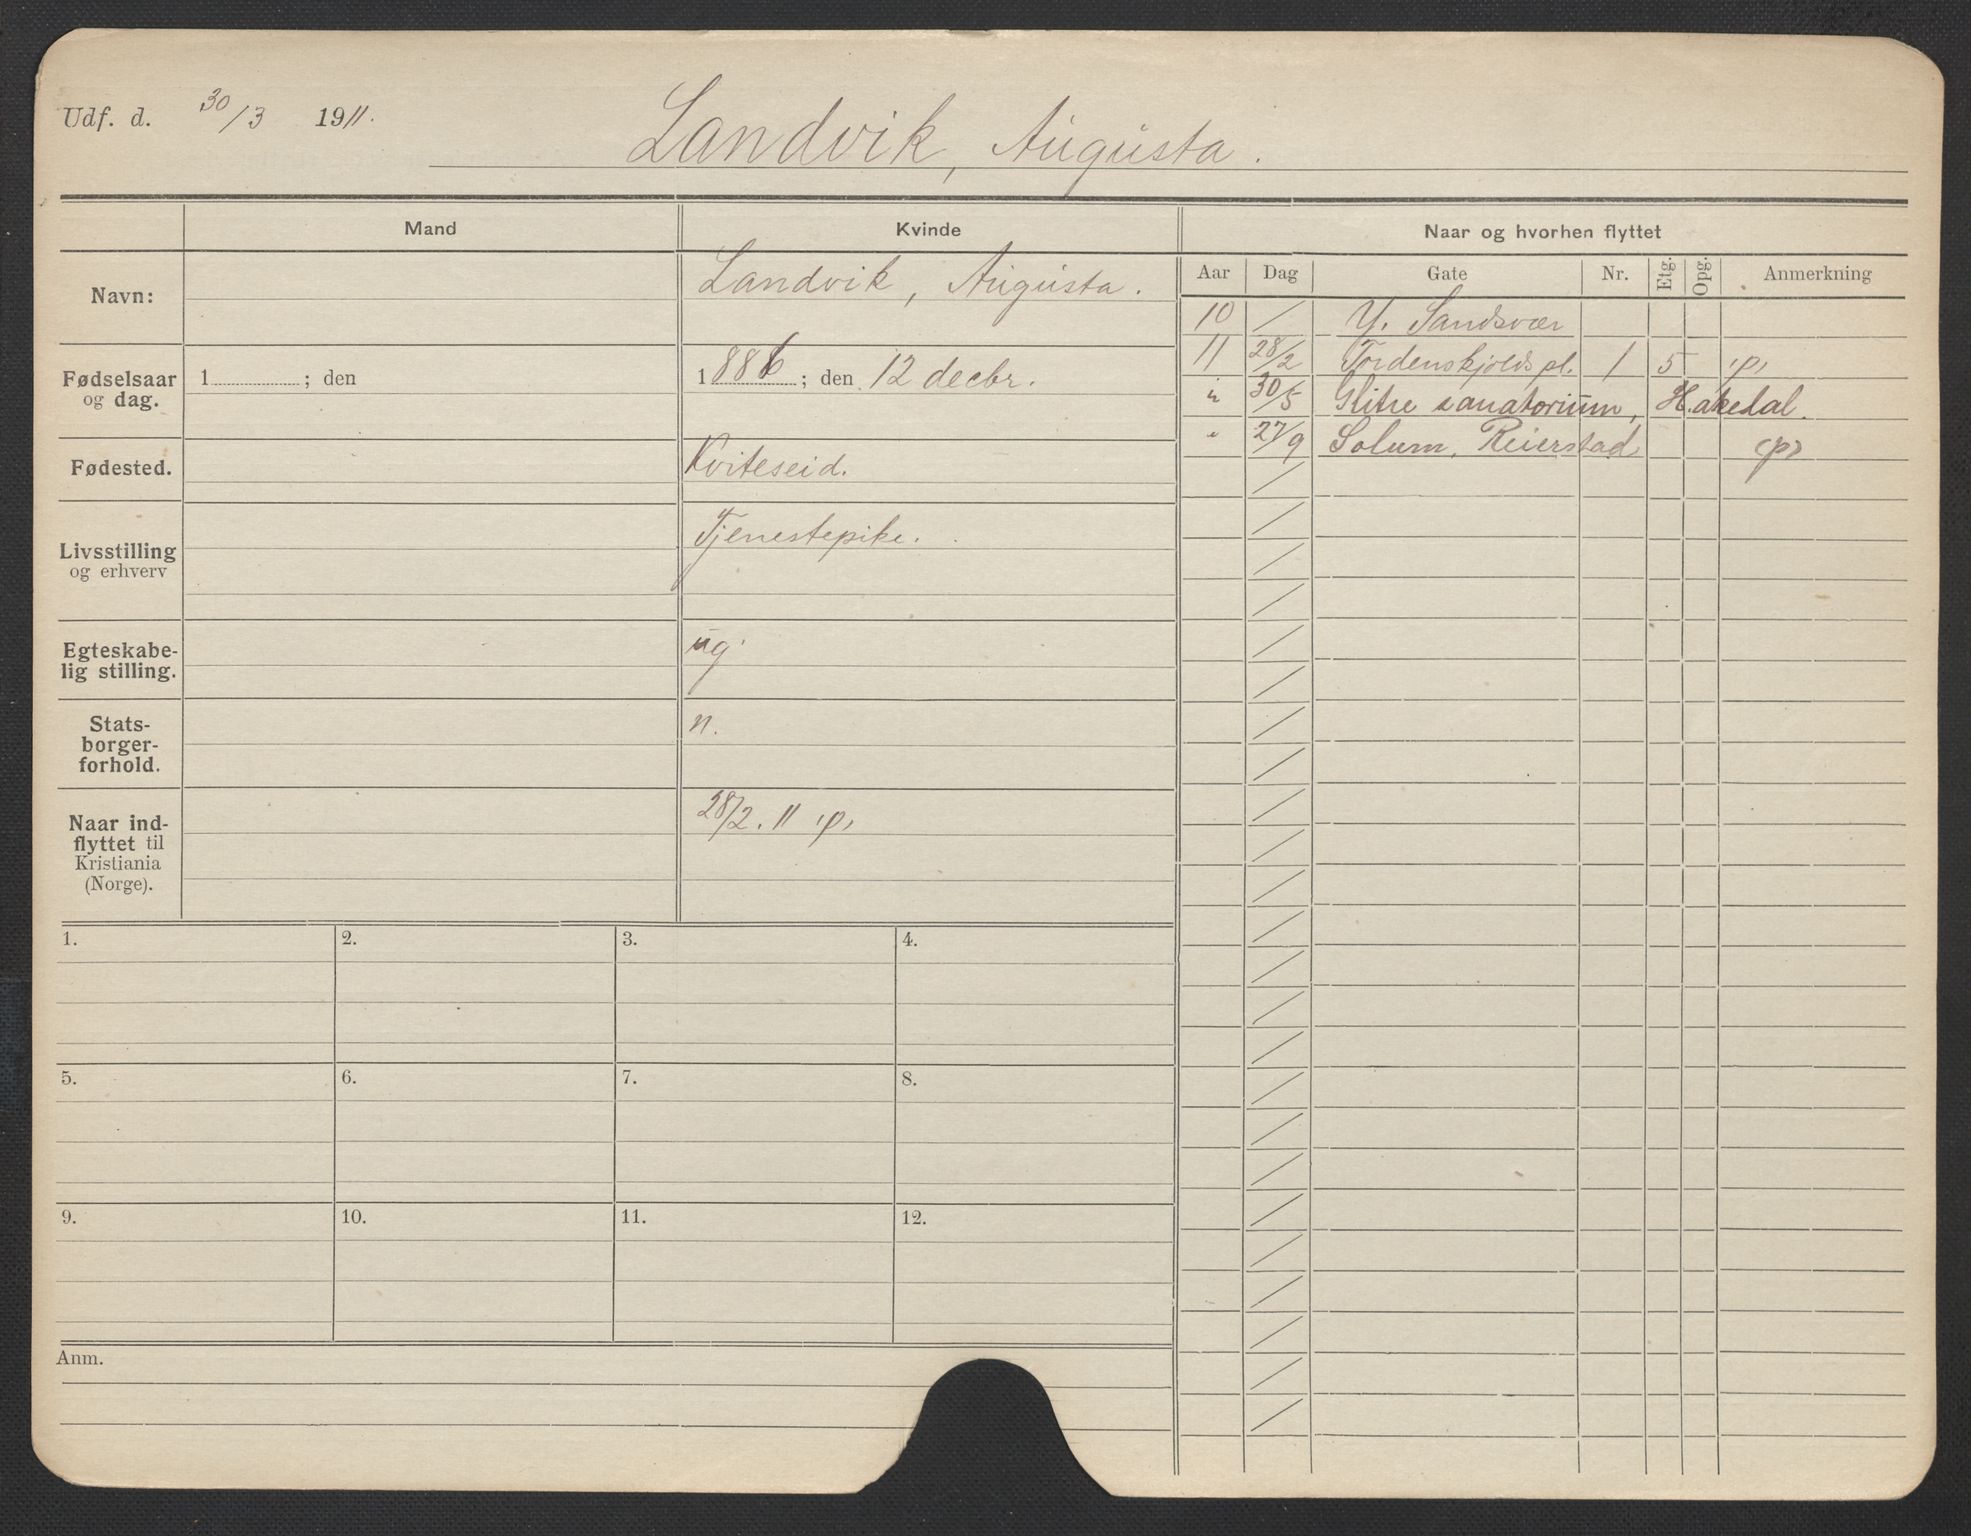 Udf. d. 30/3 1911.
Landvik, Augusta.
Mand
Kvinde
Naar og hvorhen flyttet
Navn:
Landvik, Augusta.
Fødselsaar
og dag.
1 ; den
1886 ; den 12 decbr.
Fødested.
Kviteseid.
Livsstilling
og erhverv
Tjenestepike.
Egteskabe-
lig stilling.
ug.
Stats-
borger-
forhold.
n.
Naar ind-
flyttet til
Kristiania
(Norge).
28/2. 11 (p)
Aar Dag Gate Nr. Etg. Opg. Anmerkning
10 / Y. Sandsvær
11 28/2 Tordenskjolds pl. 1 5 (p)
" 30/5 Glitre sanatorium, Hakedal.
" 27/9 Solum, Reierstad (p)
1. 2. 3. 4.
5. 6. 7. 8.
9. 10. 11. 12.
Anm.